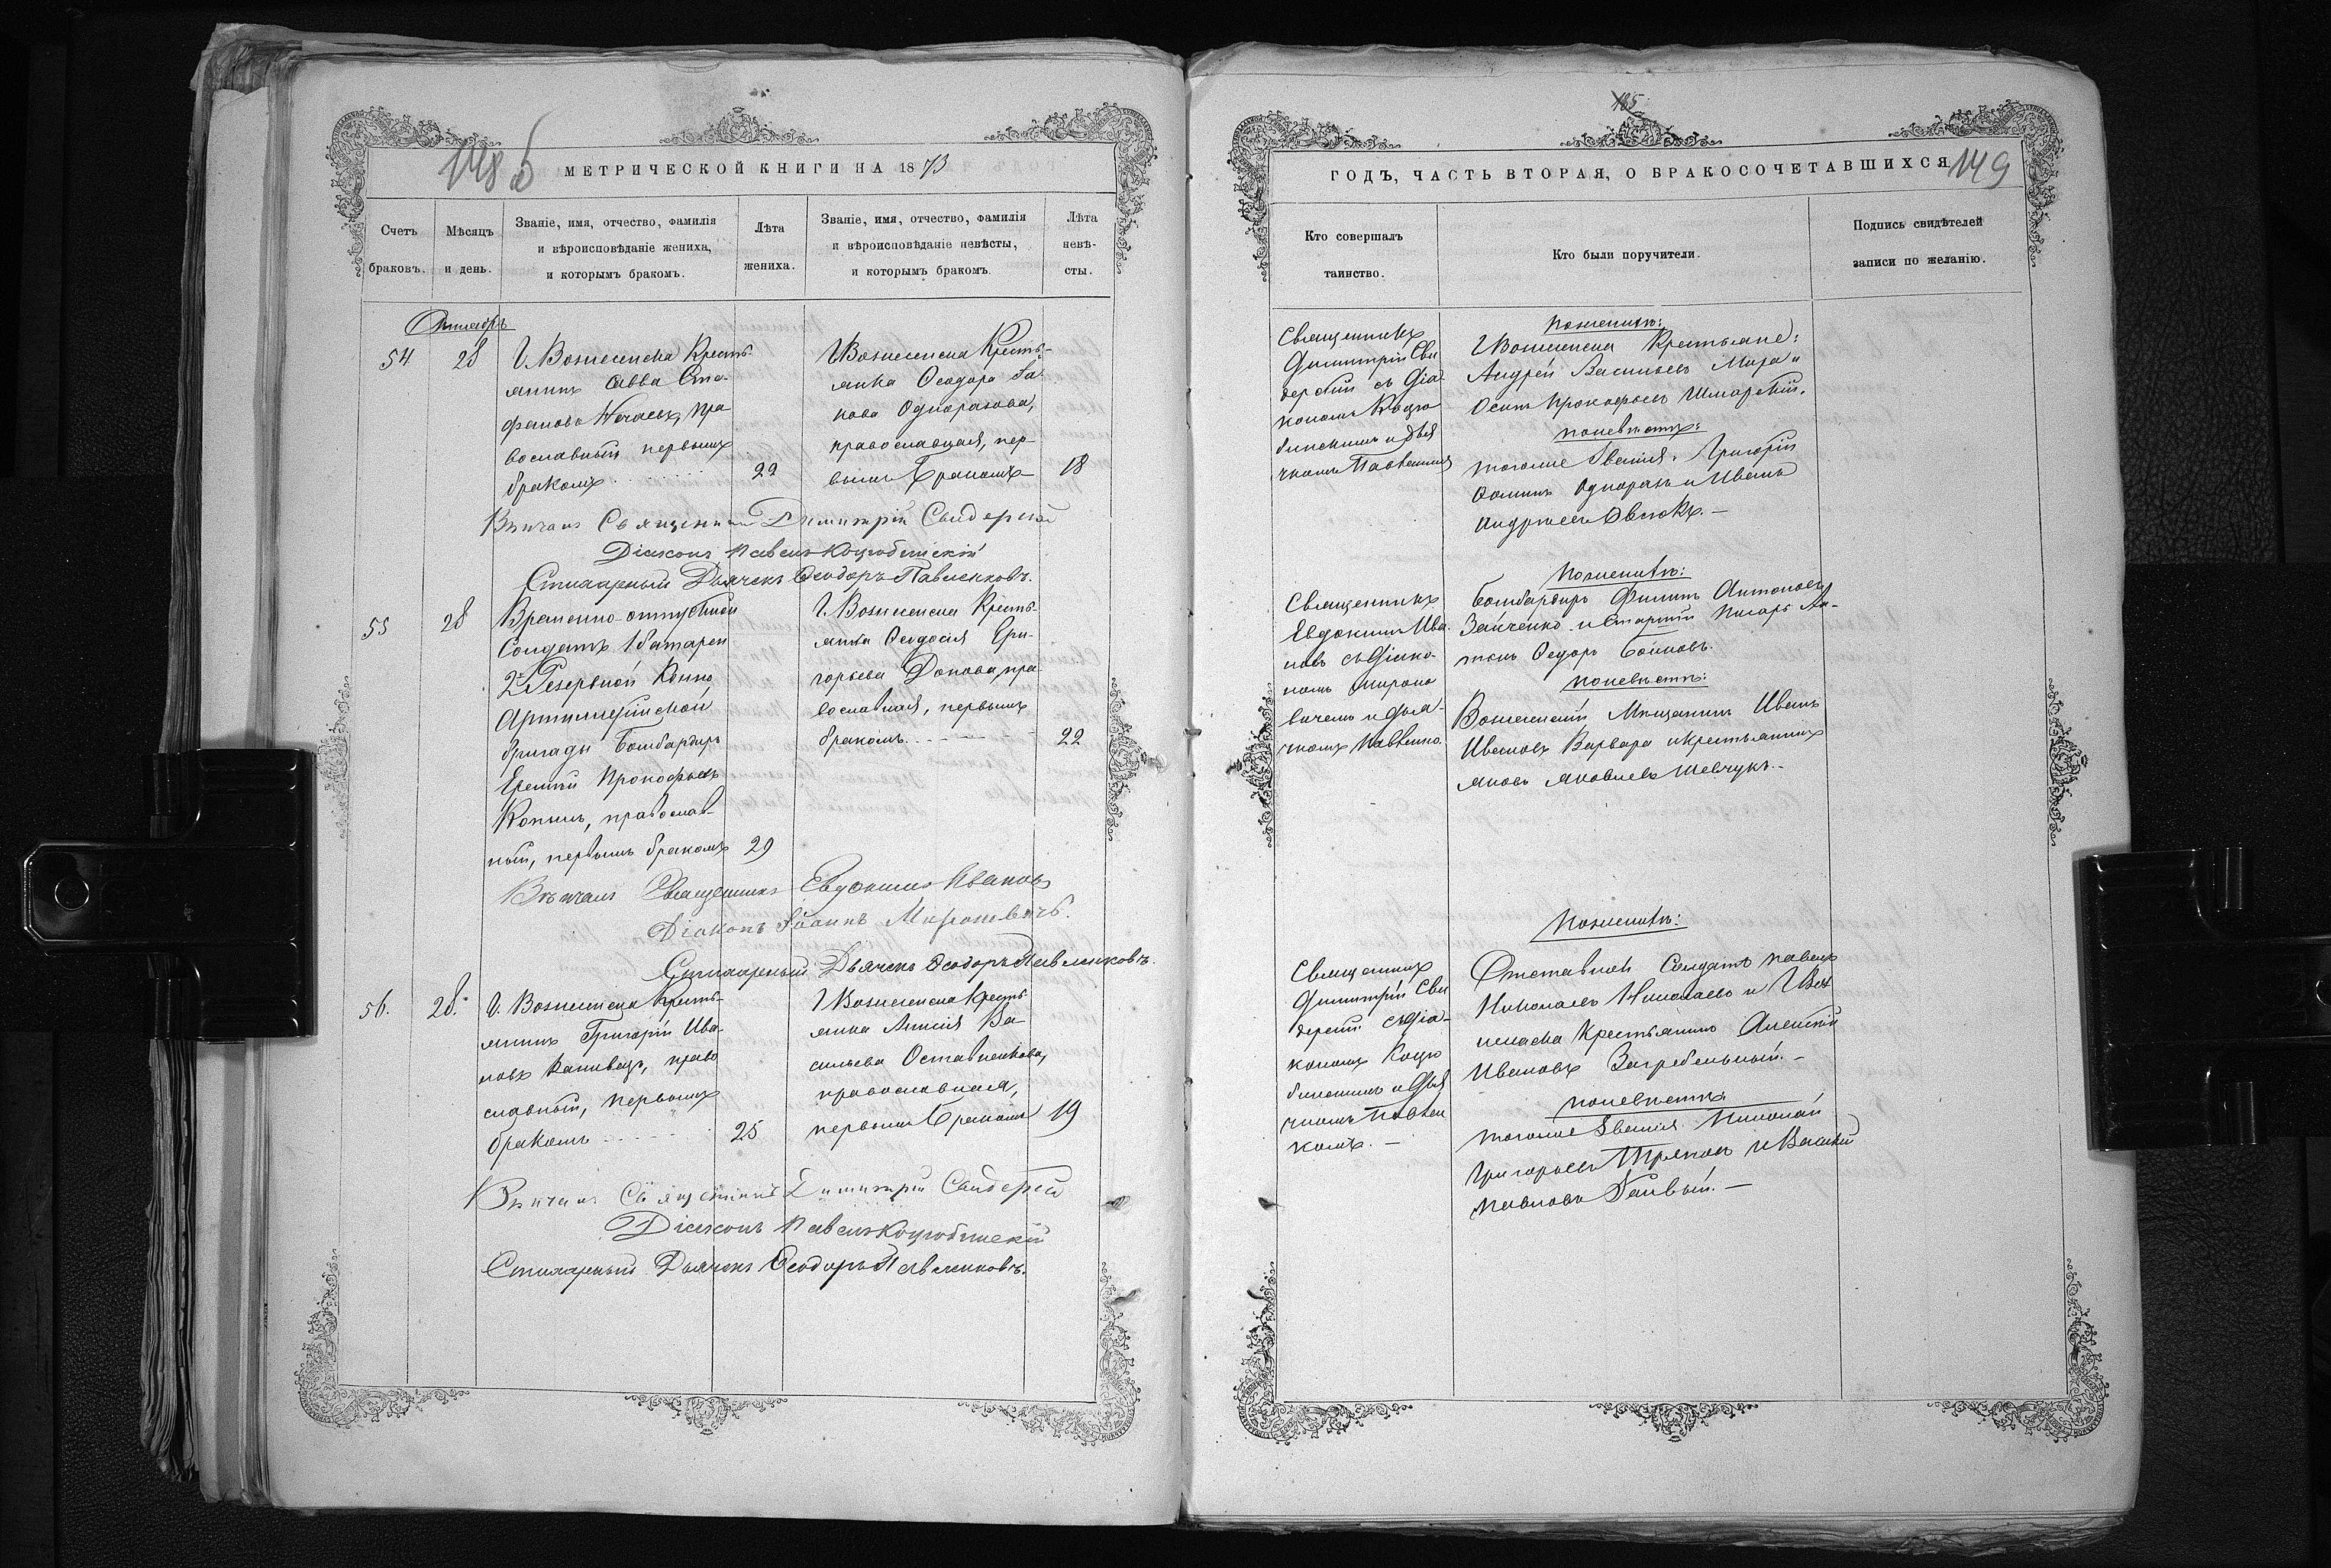 148 б
МЕТРИЧЕСКОЙ КНИГИ НА 1873
Счетъ браковъ.
Мѣсяцъ и день.
Званіе, имя, отчество, фамилія
и вѣроисповѣданіе жениха,
и которымъ бракомъ.
Лѣта
жениха.
Званіе, имя, отчество, фамилія
и вѣроисповѣданіе невѣсты,
и которымъ бракомъ.
Лѣта
невѣ-
сты.
Октябрь
54
28
Г. Вознесенска Кресть-
янинъ Савва Сте-
фановъ Нечаевъ, пра
вославный первымъ
бракомъ
22
Г. Вознесенска Кресть-
янка Ѳеодора Іа
кова Одноразова,
православная, пер-
вымъ бракомъ
18
Вѣнчалъ Священникъ Димитрій Свидерскій
Діаконъ Павелъ Коцюбинскій
Стихарный Дьячекъ Ѳеодоръ Павленковъ.
55
28
Временно-отпускной
Солдатъ 1 батареи
2й Резервной Конно
Артиллерійской
бригады Бомбардиръ
Еремѣй Прокофьевъ
Копылъ, православ-
ный, первымъ бракомъ
29
Г. Вознесенска Кресть-
янка Ѳеодосія Гри-
горьева Донова, пра
вославная, первымъ
бракомъ
22
Вѣнчалъ Священникъ Евдокимъ Ивановъ
Діаконъ Іоаннъ Мироновичъ.
Стихарный Дьячекъ Ѳеодоръ Павленковъ.
56.
28.
Г. Вознесенска Кресть-
янинъ Григорій Ива-
новъ Канивецъ, право
славный, первымъ
бракомъ
25
Г. Вознесенска Кресть
янка Анисія Ва-
сильева Оставненкова,
православная,
первымъ бракомъ
19
Вѣнчалъ Священникъ Димитрій Свидерскій
Діаконъ Павелъ Коцюбинскій
Стихарный Дьячекъ Ѳеодоръ Павленковъ.
185
ГОДЪ, ЧАСТЬ ВТОРАЯ, О БРАКОСОЧЕТАВШИХСЯ
149
Кто совершалъ
таинство.
Кто были поручители.
Подпись свидѣтелей
записи по желанію.
Священникъ
Димитрій Сви
дерскій съ Діа
кономъ Коцю
бинскимъ и Дья
чкомъ Павленк
по женихѣ:
Г. Вознесенска Крестьяне:
Андрей Васильевъ и
Осипъ Прокофьевъ Шмарскій.
по невѣстѣ:
тогоже Званія. Григорій
Ѳоминъ Одноразъ и Иванъ
Андреевъ Овсюкъ. —
Священникъ
Евдокимъ Ива
новъ съ Діако-
номъ Мироно
вичемъ и Дья-
чкомъ Павленко.
по женихѣ:
Бомбардиръ Филипъ Антоновъ
Зайченко и Старшій Писарь Ан-
тонъ Ѳедоръ
по невѣстѣ:
Вознесенскій Мѣщанинъ Иванъ
Ивановъ Варвара и крестьянинъ
Яковъ Яковлевъ Шевчукъ.-
Священникъ
Димитрій Сви
дерскій съ Діа-
кономъ Коцю
бинскимъ и Дья
чкомъ Павлен
комъ. —
по женихѣ:
Отставной Солдатъ Павелъ
Николаевъ Николаевъ и Воз
несенска Крестьянинъ Алексѣй
Ивановъ Загребельный. —
по невѣстѣ
тогоже Званія Николай
Григорьевъ и Василій
Павловъ —